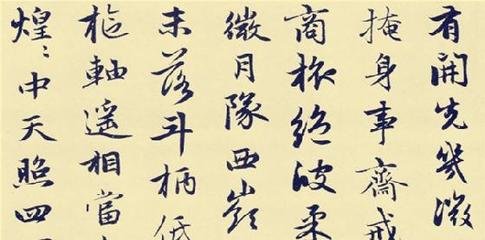 有開先幾微
掩身事齋戒
商旅絕彼柔
微月隊西嶺
未落斗柄低
樞軸遥相當
煌〻中天照四